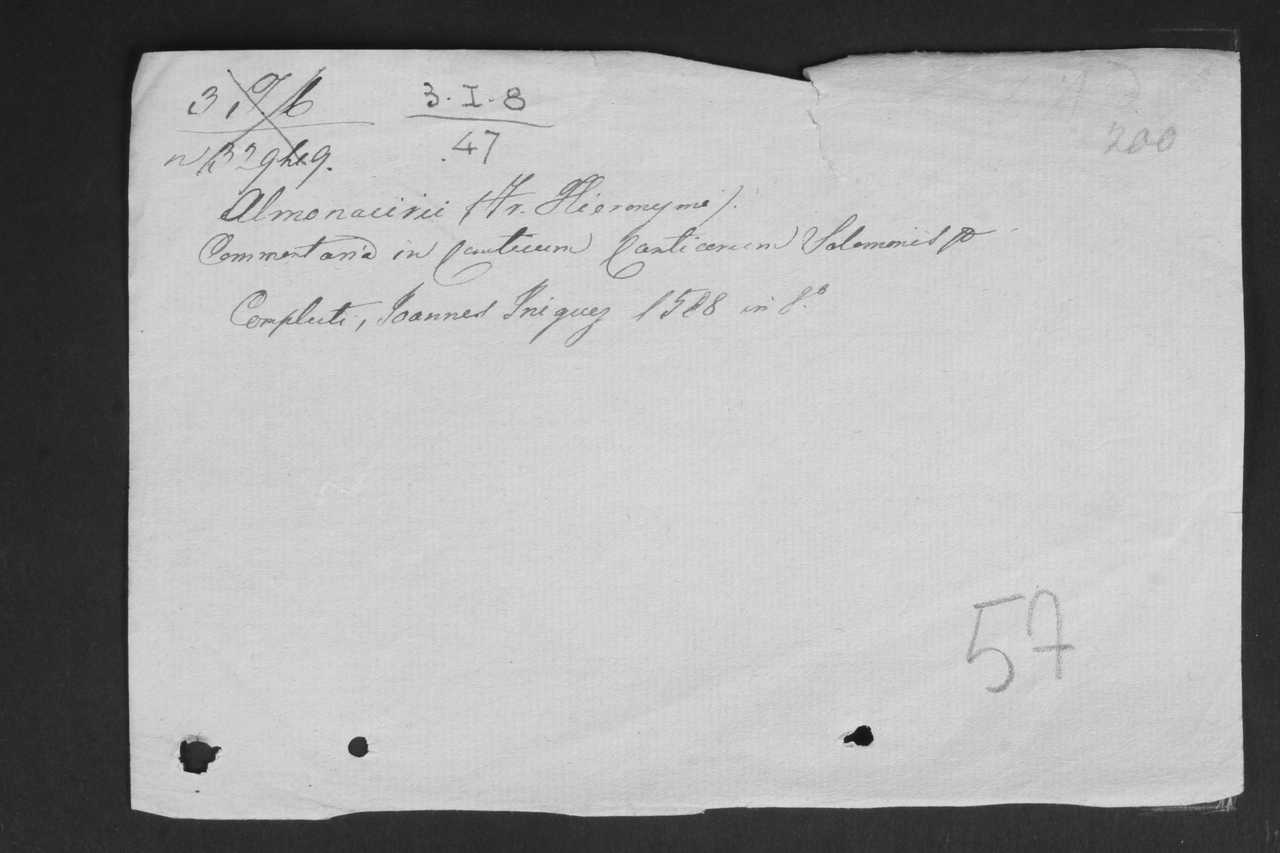 3-I-8
47
200
Almonacirii (Fr. Hieronymi).
Commentaria in Canticum Canticorum Salomonis
Compluti, Joannes Iñiguez 1588 in 8.º
57